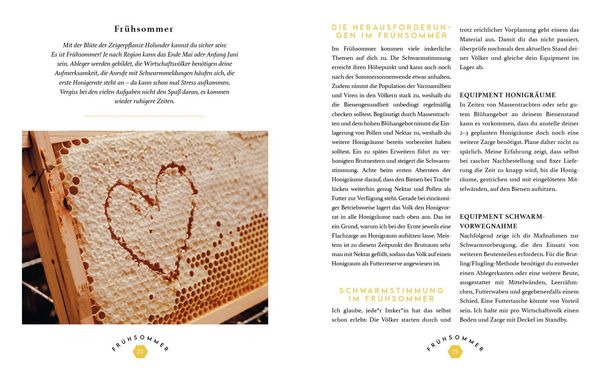 Frühsommer
Mit der Blüte der Zeigerpflanze Holunder kannst du sicher sein:
Es ist Frühsommer! Je nach Region kann das Ende Mai oder Anfang Juni
sein. Ableger werden gebildet, die Wirtschaftsvölker benötigen deine
Aufmerksamkeit, die Anrufe mit Schwarmmeldungen häufen sich, die
erste Honigernte steht an – da kann schon mal Stress aufkommen.
Vergiss bei den vielen Aufgaben nicht den Spaß daran, es kommen
wieder ruhigere Zeiten.
FRÜHSOMMER
DIE HERAUSFORDERUN-
GEN IM FRÜHSOMMER
Im Frühsommer kommen viele imkerliche
Themen auf dich zu. Die Schwarmstimmung
erreicht ihren Höhepunkt und kann auch noch
nach der Sommersonnenwende etwas anhalten.
Zudem nimmt die Population der Varroamilben
und Viren in den Völkern stark zu, weshalb du
die Bienengesundheit unbedingt regelmäßig
checken solltest. Begünstigt durch Massentrach-
ten und dem hohen Blühangebot nimmt die Ein-
lagerung von Pollen und Nektar zu, weshalb du
weitere Honigräume bereits vorbereitet haben
solltest. Ein zu spätes Erweitern führt zu ver-
honigten Brutnestern und steigert die Schwarm-
stimmung. Achte beim ersten Abernten der
Honigräume darauf, dass den Bienen bei Tracht-
lücken weiterhin genug Nektar und Pollen als
Futter zur Verfügung steht. Gerade bei einräumi-
ger Betriebsweise lagert das Volk den Honigvor-
rat in alle Honigräume nach oben aus. Das ist
ein Grund, warum ich bei der Ernte jeweils eine
Flachzarge an Honigraum aufsitzen lasse. Meis-
tens ist zu diesem Zeitpunkt der Brutraum sehr
mau mit Nektar gefüllt, sodass das Volk auf einen
Honigraum als Futterreserve angewiesen ist.
SCHWARMSTIMMUNG
IM FRÜHSOMMER
Ich glaube, jede*r Imker*in hat das selbst
schon erlebt: Die Völker starten durch und
trotz reichlicher Vorplanung geht einem das
Material aus. Damit dir das nicht passiert,
überprüfe nochmals den aktuellen Stand dei-
ner Völker und gleiche dein Equipment im
Lager ab.
EQUIPMENT HONIGRÄUME
In Zeiten von Massentrachten oder sehr gu-
tem Blühangebot an deinem Bienenstand
kann es vorkommen, dass du anstelle deiner
2–3 geplanten Honigräume doch noch eine
weitere Zarge benötigst. Plane daher nicht zu
spärlich. Meine Erfahrung zeigt, dass selbst
bei rascher Nachbestellung und fixer Liefe-
rung die Zeit zu knapp wird, bis die Honig-
räume, gestrichen und mit eingelöteten Mit-
telwänden, auf den Bienen aufsitzen.
EQUIPMENT SCHWARM-
VORWEGNAHME
Nachfolgend zeige ich dir Maßnahmen zur
Schwarmvorbeugung, die den Einsatz von
weiteren Beutenteilen erfordern. Für die Brut-
ling/Flugling-Methode benötigst du entweder
einen Ablegerkasten oder eine weitere Beute,
ausgestattet mit Mittelwänden, Leerrähm-
chen, Futterwaben und gegebenenfalls einem
Schied. Eine Futtertasche könnte von Vorteil
sein. Ich halte mir pro Wirtschaftsvolk einen
Boden und Zarge mit Deckel im Standby.
FRÜHSOMMER